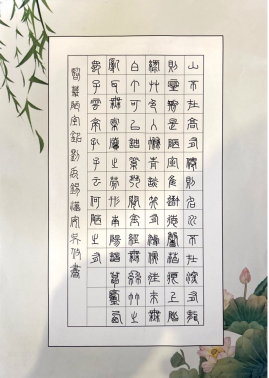 山不在高有僊則名水不在深有龍
則靈斯是陋室惟吾德馨苔痕上階
綠草色入簾青談笑有鴻儒往來無
白丁可以調素琴閱金經無絲竹之
亂耳無案牘之勞形南陽諸葛廬西
蜀子雲亭孔子云何陋之有
陋室銘劉禹錫